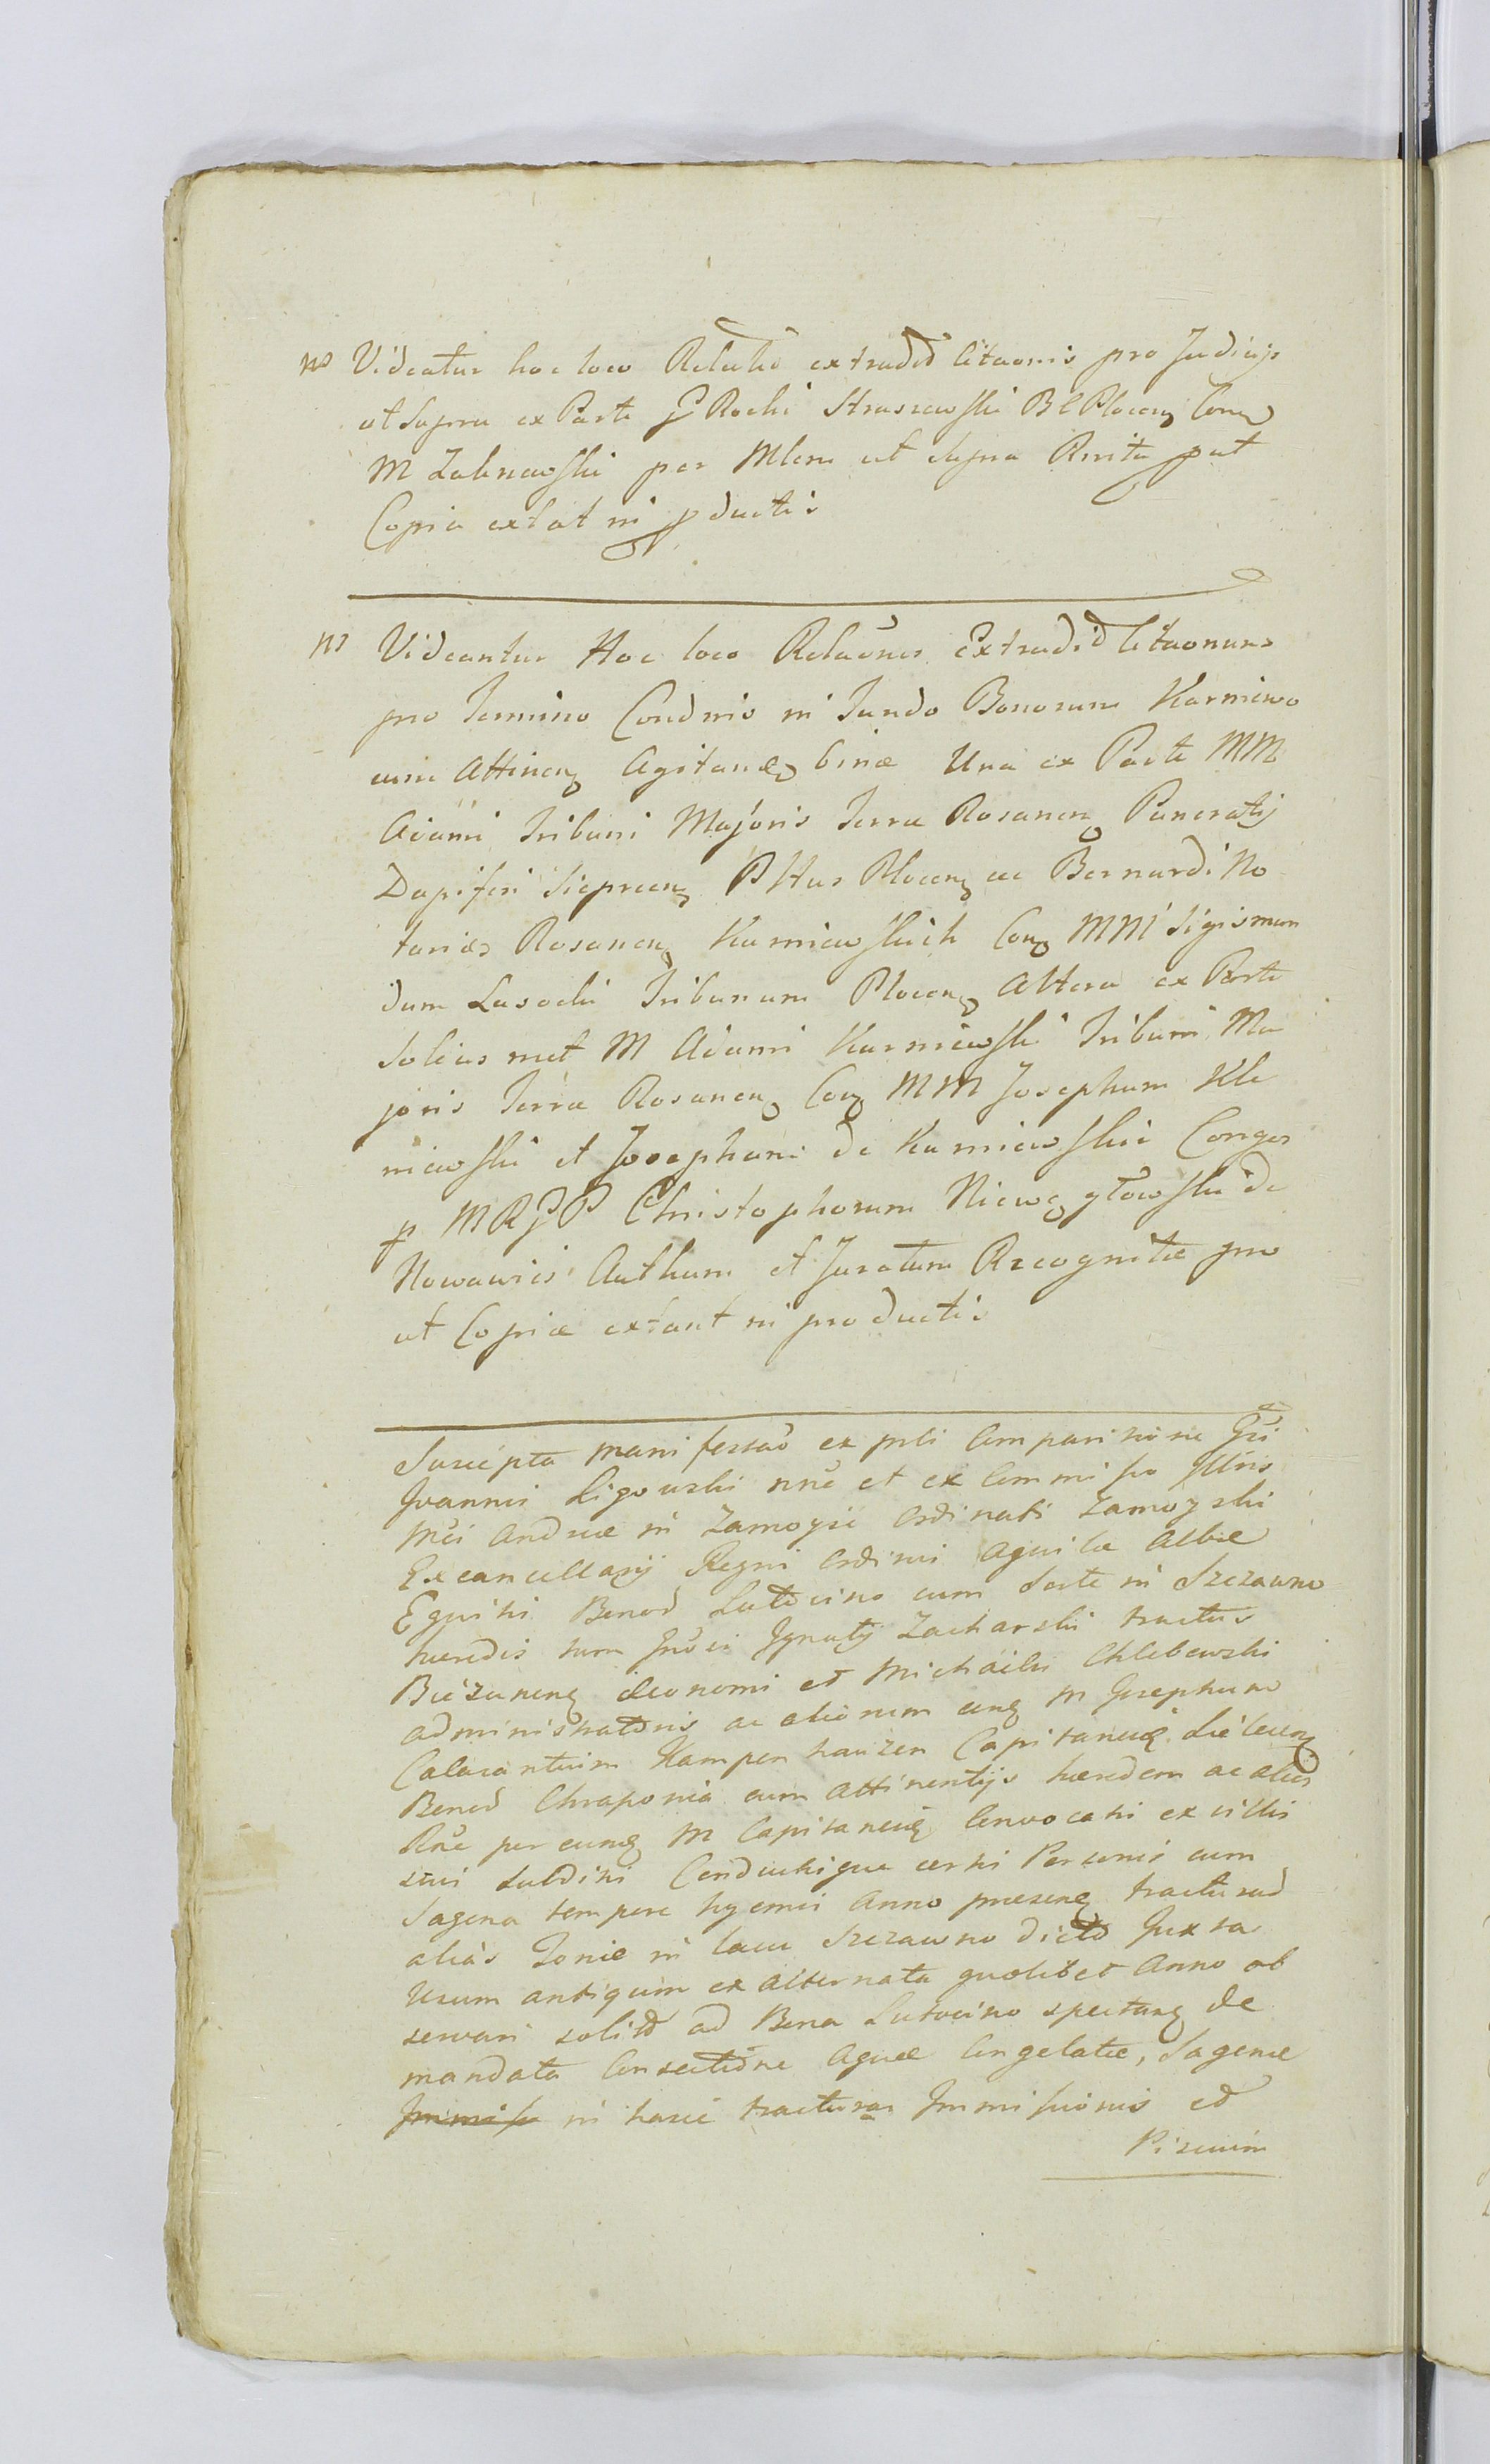 Videatur hoc loco Relatio extradid Citaonis pro Judicijs
ut Supra ex Parte G Rochi Straszewski B C Plocen Con
M Zalenawski per Mlem ut Supra Rnita put
Copia extat in pductis
Videantur Hoc loco Relaones Extradid Citaonum
pro Termino Condnis in Fundo Bonorum Karniewo
cum Attinen Agitand binæ Una ex Parte MM
Adami Tribuni Majoris Terræ Rosanen Pancratij
Dapiferi Sieprcen Pttus Plocen ac Bernardi No
tarios Rosanen Karniewskich Con MM Sigismun
dum Lasocki Tribunum Plocen Altera ex Parte
Solius met M Adami Karniewski Tribuni Ma
joris Terræ Rosanen Con MM Josephum Kle
niewski et Josepham de Karniewskie Conges
p MRGP Christophorum Niewęgłowski de
Nowawies Authum et Juratum Recognitæ pro
ut Copiæ extant in productis
Suscepta manifestao ex prli Comparitione Gsi
Joannis Ligowski nne et ex Commisso Illris
Mci Andreæ in Zamoyscie Ordinati Zamoyski
Excancellarij Regni Ordinis Aquilæ Albæ
Equitis Bonod Lutocino cum Sorte in Szczawno
hæredis tum Gnosi Ignatij Zacharski tractus
Bieżunen Oeconomi et Michaelis Chlebowski
administratoris ac aliorum cong M Josephum
Calasantium Kampenhauzen Capitaneū
Bonod Chraponia cum attinentijs hæredem ac alios
Rne per eumq M Capitaneū Convocati ex villis
sui Subditi Conductique certi Personis cum
Sagena tempore hyemis Anno præsenq tracturad
alias Tonie in lacu Szczawno dicto Juxta
Usum antiquum ex alternata quolibet Anno ob
servari solito ad Bona Lutocino spectanq de
mandata Consectione Aquæ Congelatæ, Sagenæ
in hasce tracturas Immissionis et
Piscium